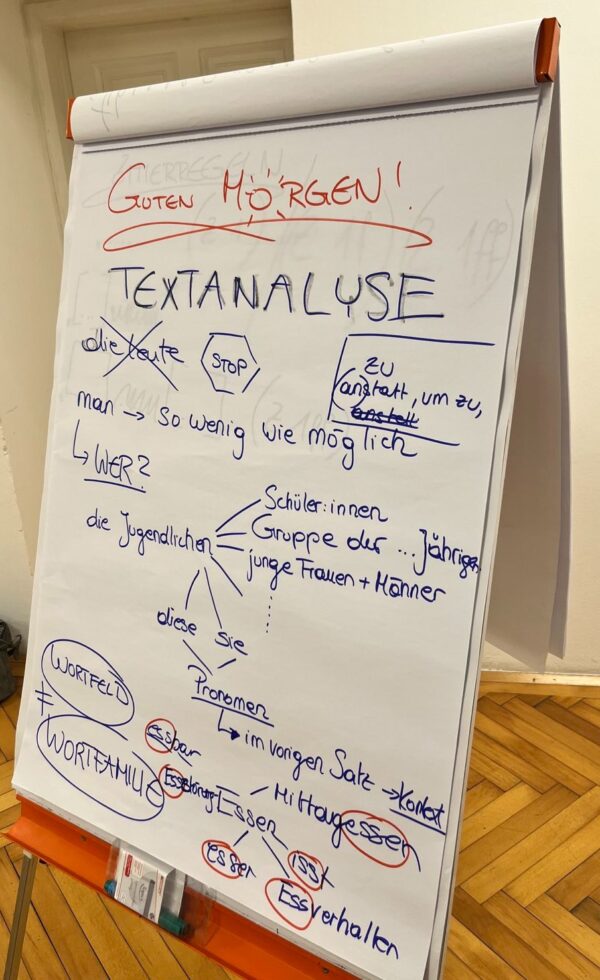 GUTEN MORGEN!
TEXTANALYSE
die Leute
STOP
zu
(anstatt, um zu,
anstell
man → so wenig wie möglich
↳ WER?
die Jugendlichen
Schüler:innen
Gruppe der ... jährigen
junge Frauen + Männer
diese sie
Pronomen
↳ im vorigen Satz →
WORTFELD
≠
WORTFAMILIE
essbar
Essen
Mittagessen
esser
isst
Essverhalten